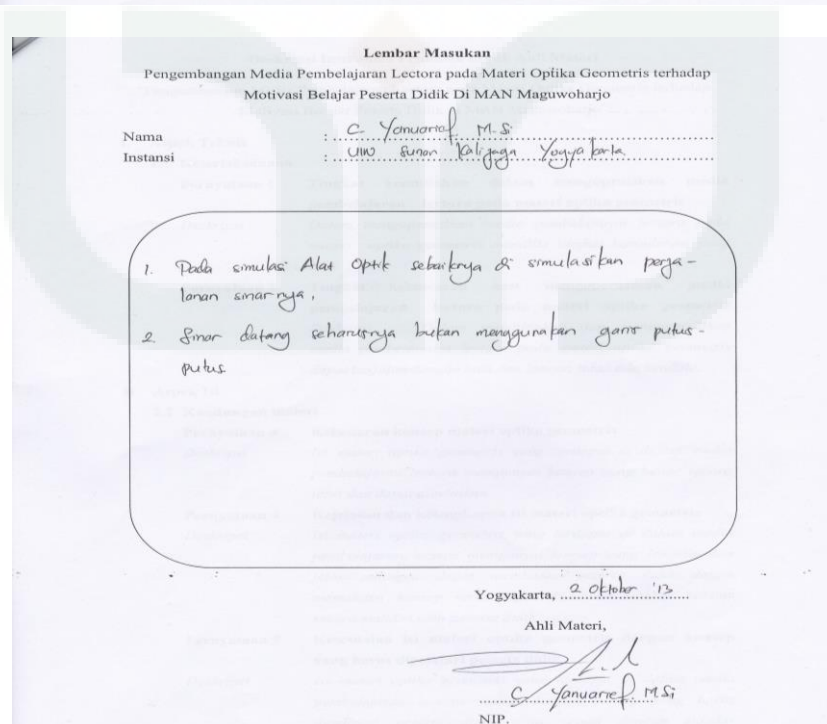 Lembar Masukan
Pengembangan Media Pembelajaran Lectora pada Materi Optika Geometris terhadap
Motivasi Belajar Peserta Didik Di MAN Maguwoharjo
Nama : C Yanuarief M.Si
Instansi : UIN Sunan Kalijaga Yogyakarta
1. Pada simulasi Alat Optik sebaiknya di simulasikan perja-
lanan sinarnya.
2. Sinar datang seharusnya bukan menggunakan garis putus-
putus
Yogyakarta, 2 Oktober '13
Ahli Materi,
C Yanuarief M.Si
NIP.